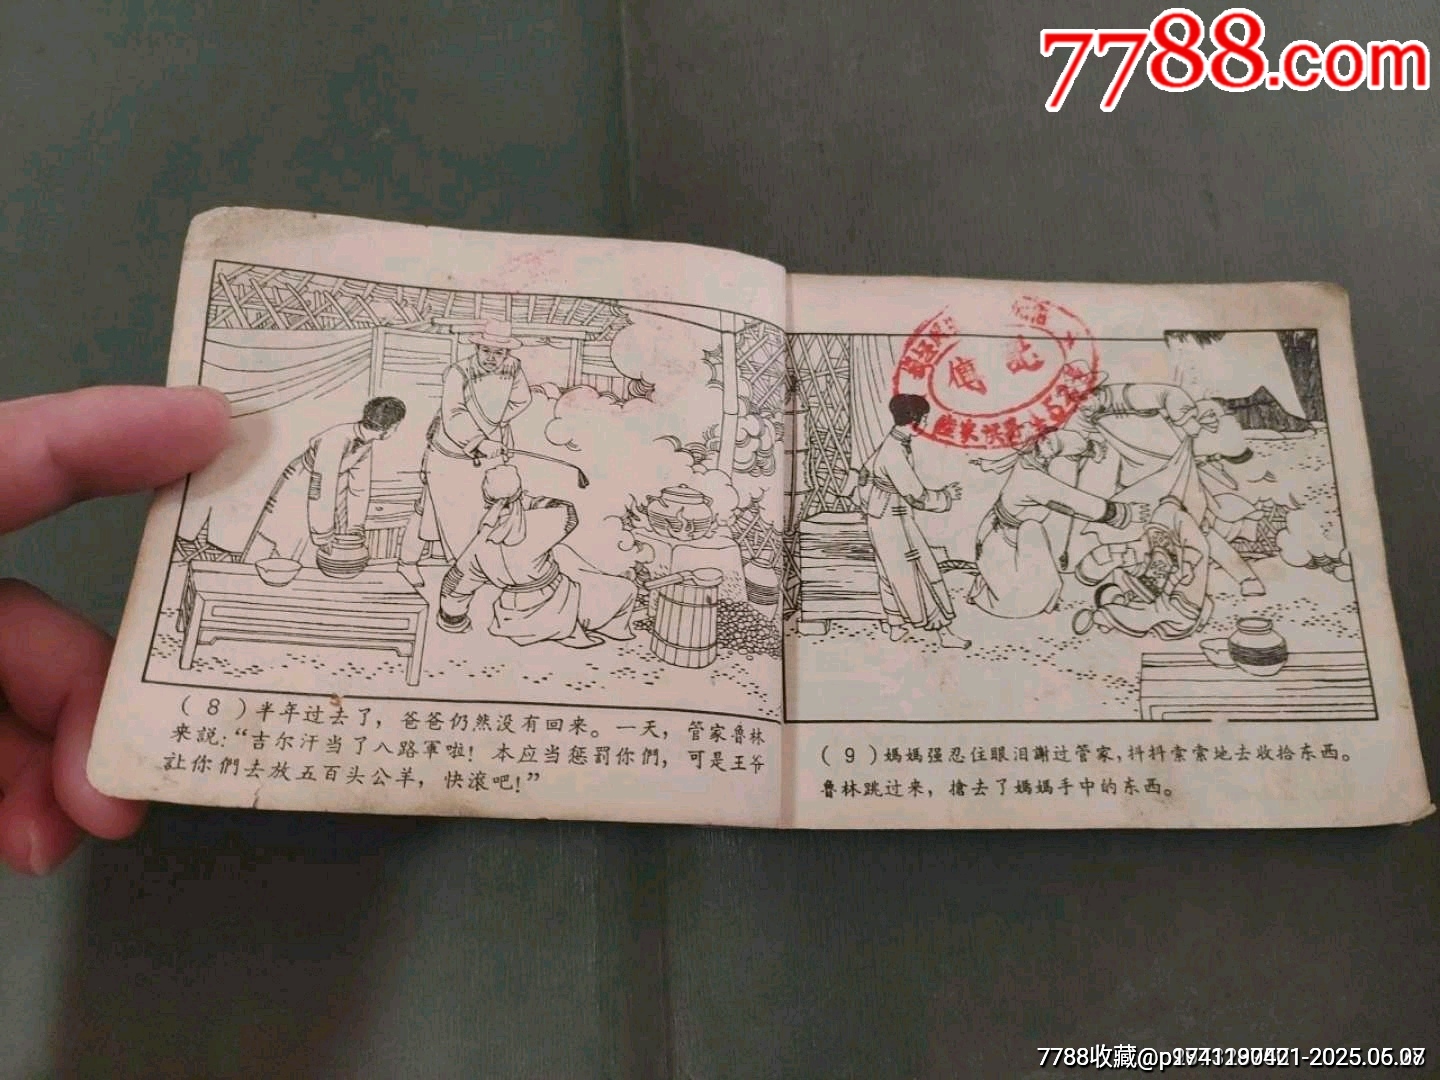 7788.com
(8)半年过去了，爸爸仍然没有回来。一天，管家鲁林
来説："吉尔汗当了八路軍啦！本应当惩罰你們，可是王爷
让你們去放五百头公羊，快滚吧！"
(9)媽媽强忍住眼泪謝过管家，抖抖索索地去收拾东西。
鲁林跳过来，搶去了媽媽手中的东西。